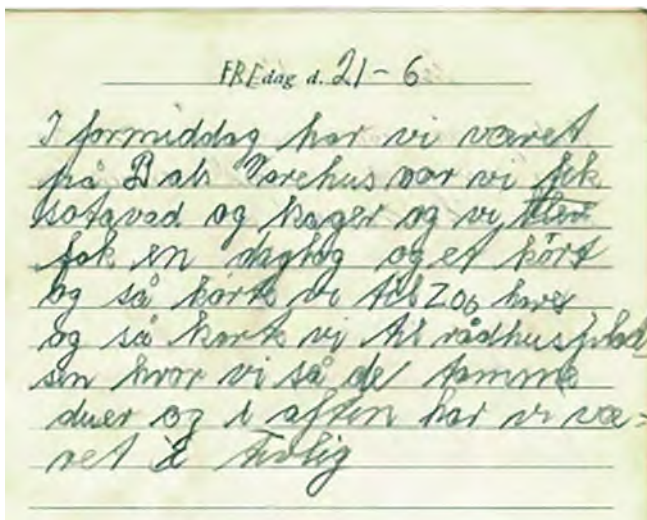 FREdag d. 21-6
I formiddag har vi været
på Bals Varehus vor vi fik
sotavad og kager og vi blev
fok en dagbog og et kört
og så kørte vi til Zoo have
og så kørte vi til rådhusplad
sen hvor vi så de tamme
duer og i aften har vi væ-
ret i Tivolig